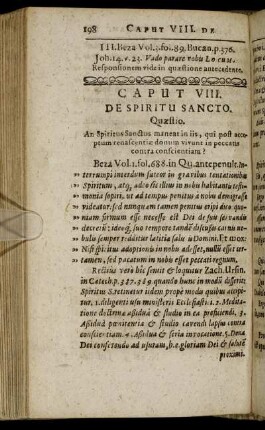 198 CAPUT VIII. DE
III. Beza Vol. 3. fol. 89. Bucan. p. 376.
Joh. 14. v. 23. Vado parare vobis Locum.
Responsionem vide in quæstione antecedente.
CAPUT VIII.
DE SPIRITU SANCTO.
Quæstio.
An Spiritus Sanctus maneat in iis, qui post acceptum
renascentiæ donum vivunt in peccatis
contra conscientiam?
Beza Vol. 1. fol. 688. in Qu. antepenult. Interrumpi
interdum fateor in gravibus tentationibus
Spiritum, atq, adeo sic illum in nobis habitantis testimonia
sopiri, ut ad tempus penitus à nobis demigrasse
videatur. sed nunquam tamen penitus eripi dico: quoniam
firmum esse necesse est Dei de suis servandis
decretū: ideoq, suo tempore tandē discussis carnis nebulis
semper redditur lætitia salutis Domini. Et nox:
esse certamen,
sed pacatum in nobis esset peccati regnum.
Rectius verò blè sensit & loquutur Zach. Ursin.
in Catech. p. 327. 329. quando hunc in modū disserit:
Spiritus S. retinetur iidem propè modis quibus acceptus.
1. diligenti usu ministerii Ecclesiastici. 2. Meditatione
doctrinæ assiduâ & studio in eâ proficiendi. 3.
Assiduâ pœnitentiâ & studio cavendi lapsus contra
conscientiam. 4. Assiduâ & seria invocatione. 5. Dona
Dei conferendo ad usum, h. e. gloriam Dei & salutē
proximi.